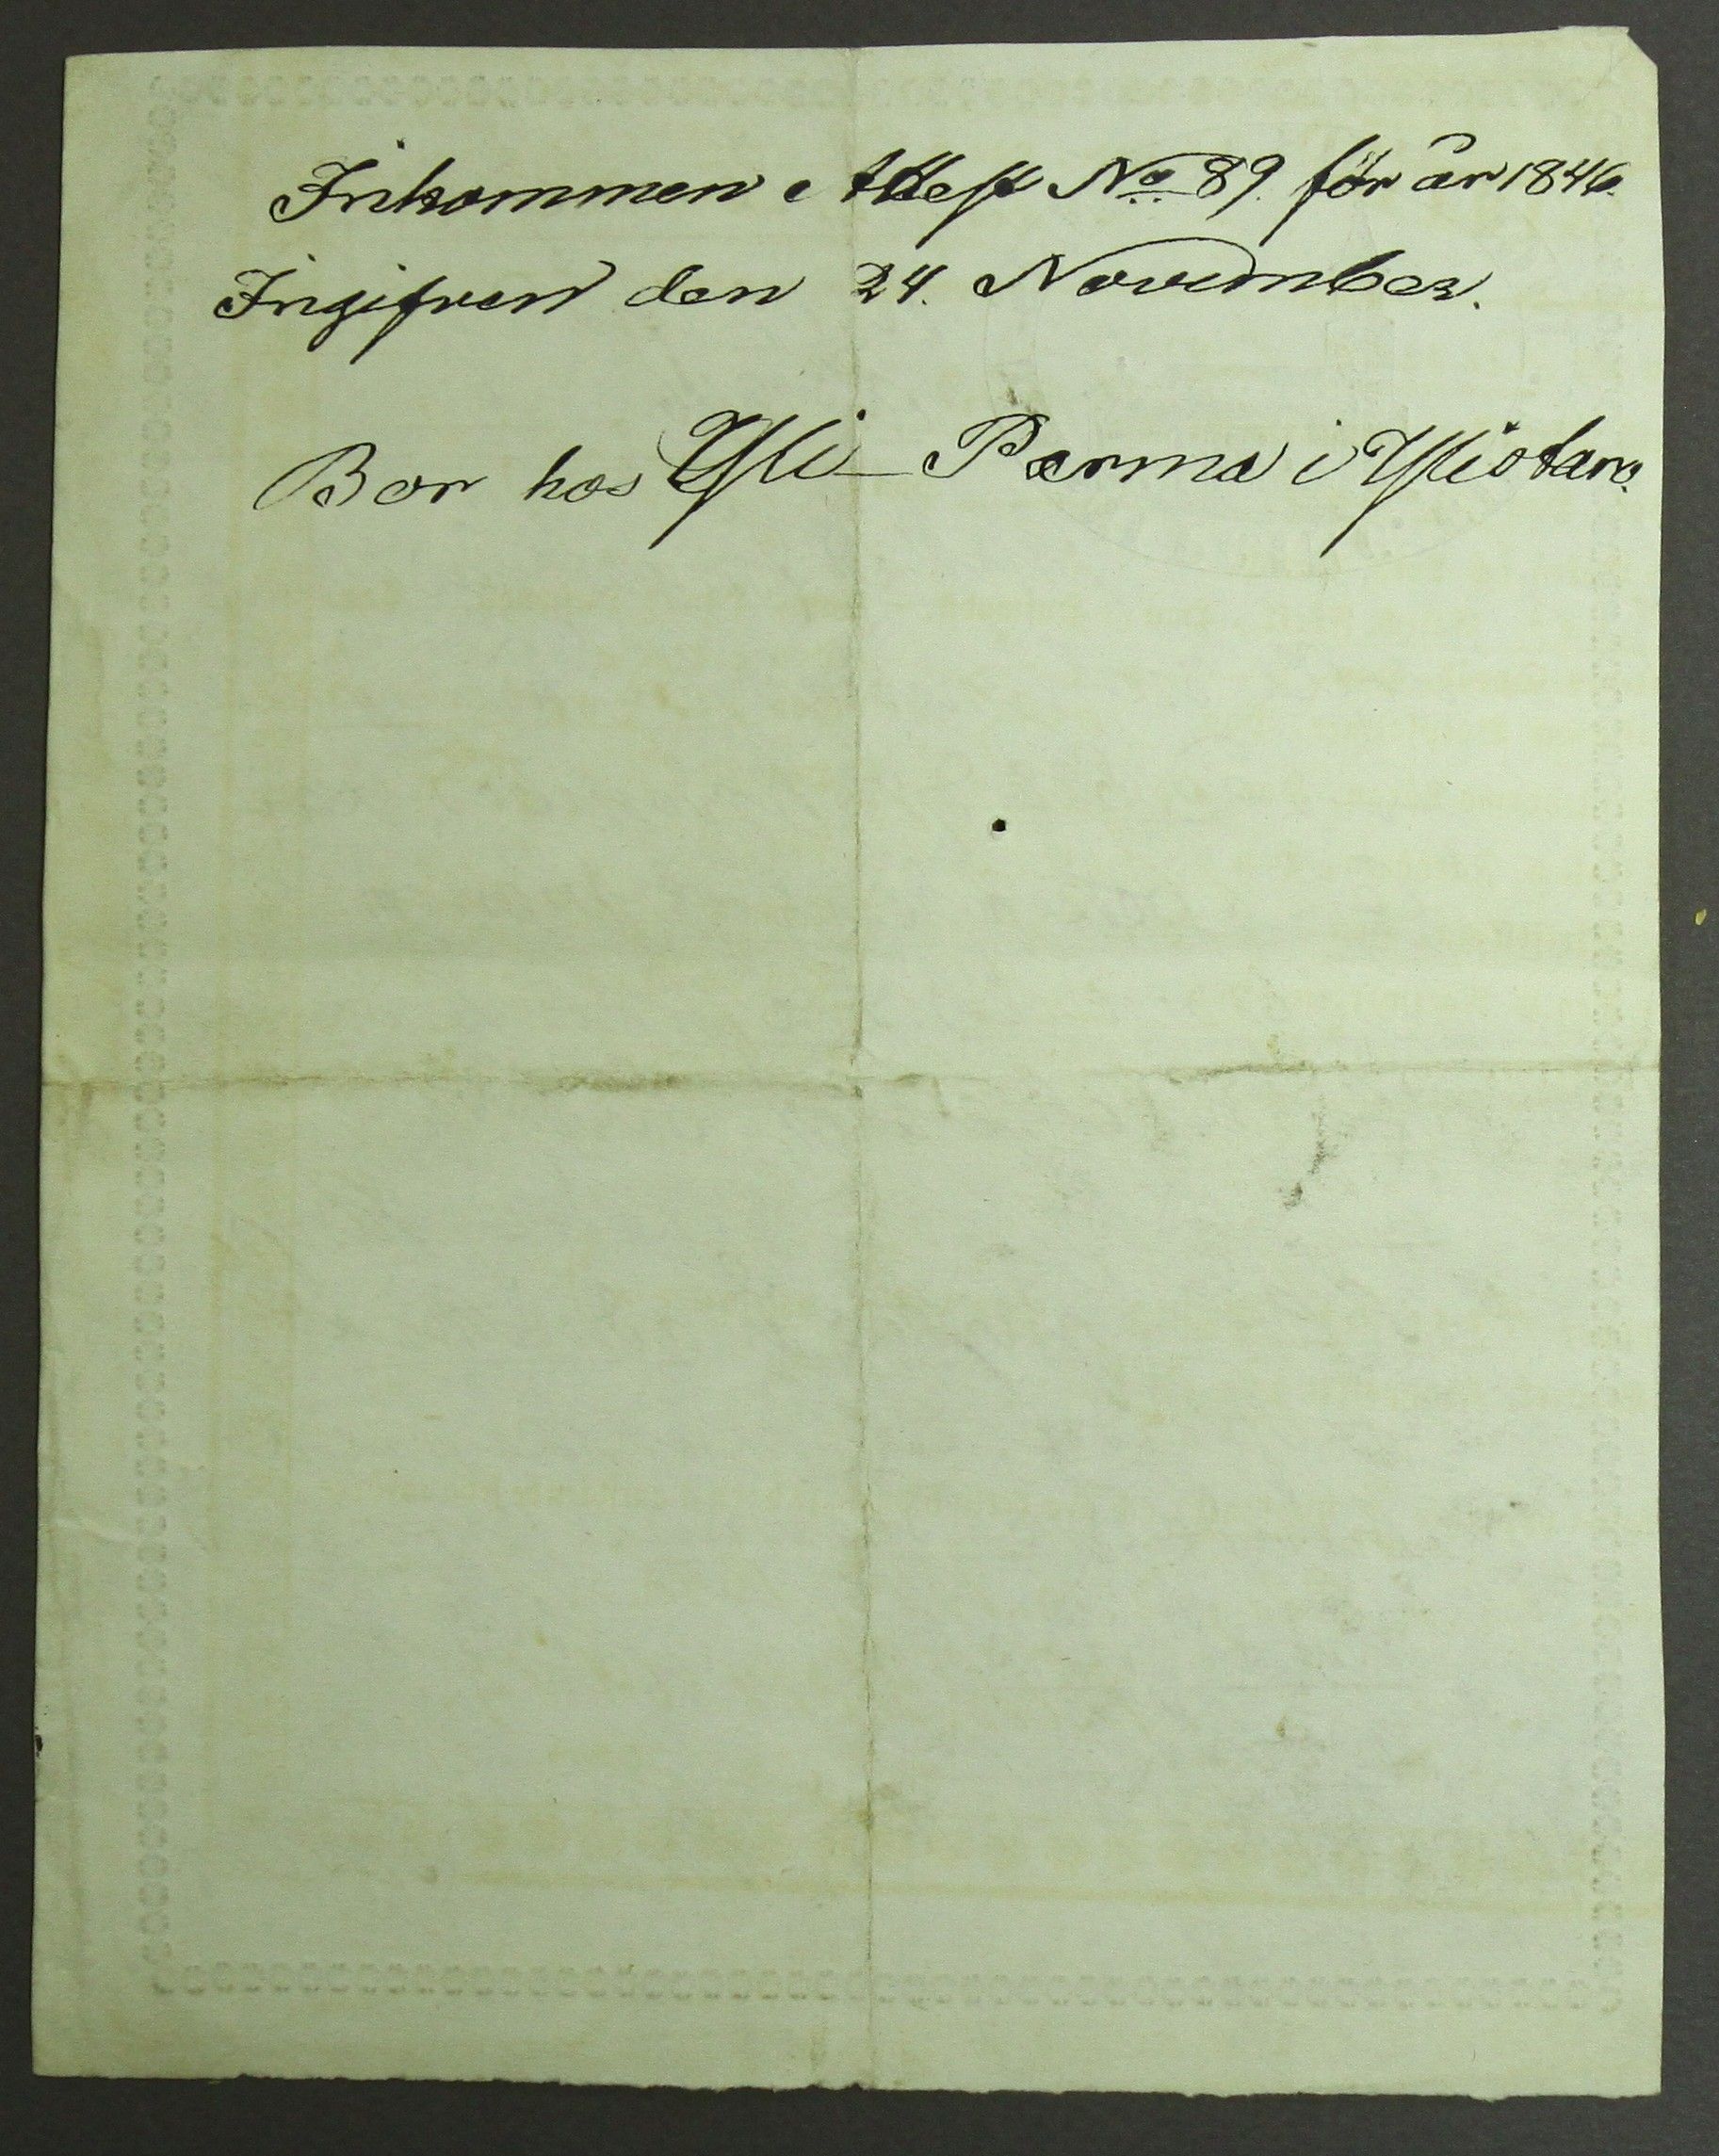 Inkommen Attest No 89. för år 1846.
Ingifven den 24. November.
Bor hos Yli Parma i Ylistaro.